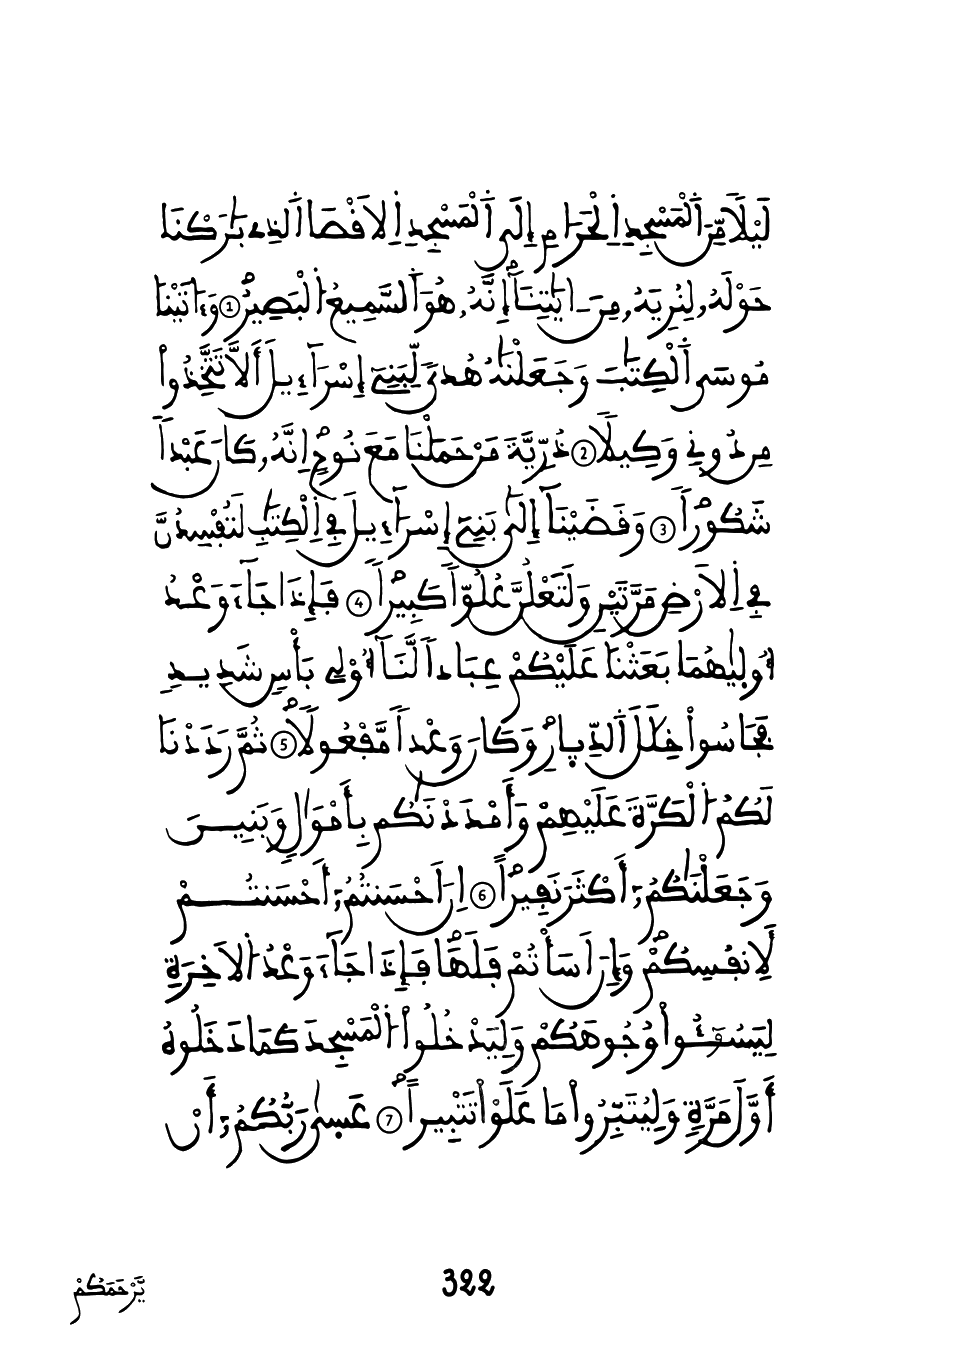 لَيْلًا مِّنَ اَ۬لْمَسْجِدِ اِ۬لْحَرَامِ إِلَي اَ۬لْمَسْجِدِ اِ۬لَاقْصَا اَ۬لذِے بَٰرَكْنَا
حَوْلَهُۥ لِنُرِيَهُۥ مِنَ اٰيَٰتِنَآ إِنَّهُۥ هُوَ اَ۬لسَّمِيعُ اُ۬لْبَصِيرُ 1 وَءَاتَيْنَا
مُوسَي اَ۬لْكِتَٰبَ وَجَعَلْنَٰهُ هُديٗ لِّبَنِےٓ إِسْرَآءِيلَ أَلَّا تَتَّخِذُواْ
مِن دُونِے وَكِيلًا 2 ذُرِّيَّةَ مَنْ حَمَلْنَا مَعَ نُوحٍ اِنَّهُۥ كَانَ عَبْداٗ
شَكُوراٗ 3 وَقَضَيْنَآ إِلَيٰ بَنِےٓ إِسْرَآءِيلَ فِے اِ۬لْكِتَٰبِ لَتُفْسِدُنَّ
فِے اِ۬لَارْضِ مَرَّتَيْنِ وَلَتَعْلُنَّ عُلُوّاٗ كَبِيراٗ 4 فَإِذَا جَآءَ وَعْدُ
أُولَيٰهُمَا بَعَثْنَا عَلَيْكُمْ عِبَاداٗ لَّنَآ أُوْلِے بَأْسٖ شَدِيدٖ
فَجَاسُواْ خِلَٰلَ اَ۬لدِّيارِ وَكَانَ وَعْداٗ مَّفْعُولًا 5 ثُمَّ رَدَدْنَا
لَكُمُ اُ۬لْكَرَّةَ عَلَيْهِمْ وَأَمْدَدْنَٰكُم بِأَمْوَٰلٖ وَبَنِينَ
وَجَعَلْنَٰكُمُۥٓ أَكْثَرَ نَفِيراً 6 اِنَ اَحْسَنتُمُۥٓ أَحْسَنتُمْ
لِأَنفُسِكُمْ وَإِنَ اَسَأْتُمْ فَلَهَا فَإِذَا جَآءَ وَعْدُ اُ۬لَاخِرَةِ
لِيَسُـُٔواْ وُجُوهَكُمْ وَلِيَدْخُلُواْ اُ۬لْمَسْجِدَ كَمَا دَخَلُوهُ
أَوَّلَ مَرَّةٖ وَلِيُتَبِّرُواْ مَا عَلَوْاْ تَتْبِيراً 7 عَسٜيٰ رَبُّكُمُۥٓ أَنْ
يَّرْحَمَكُمْ
322